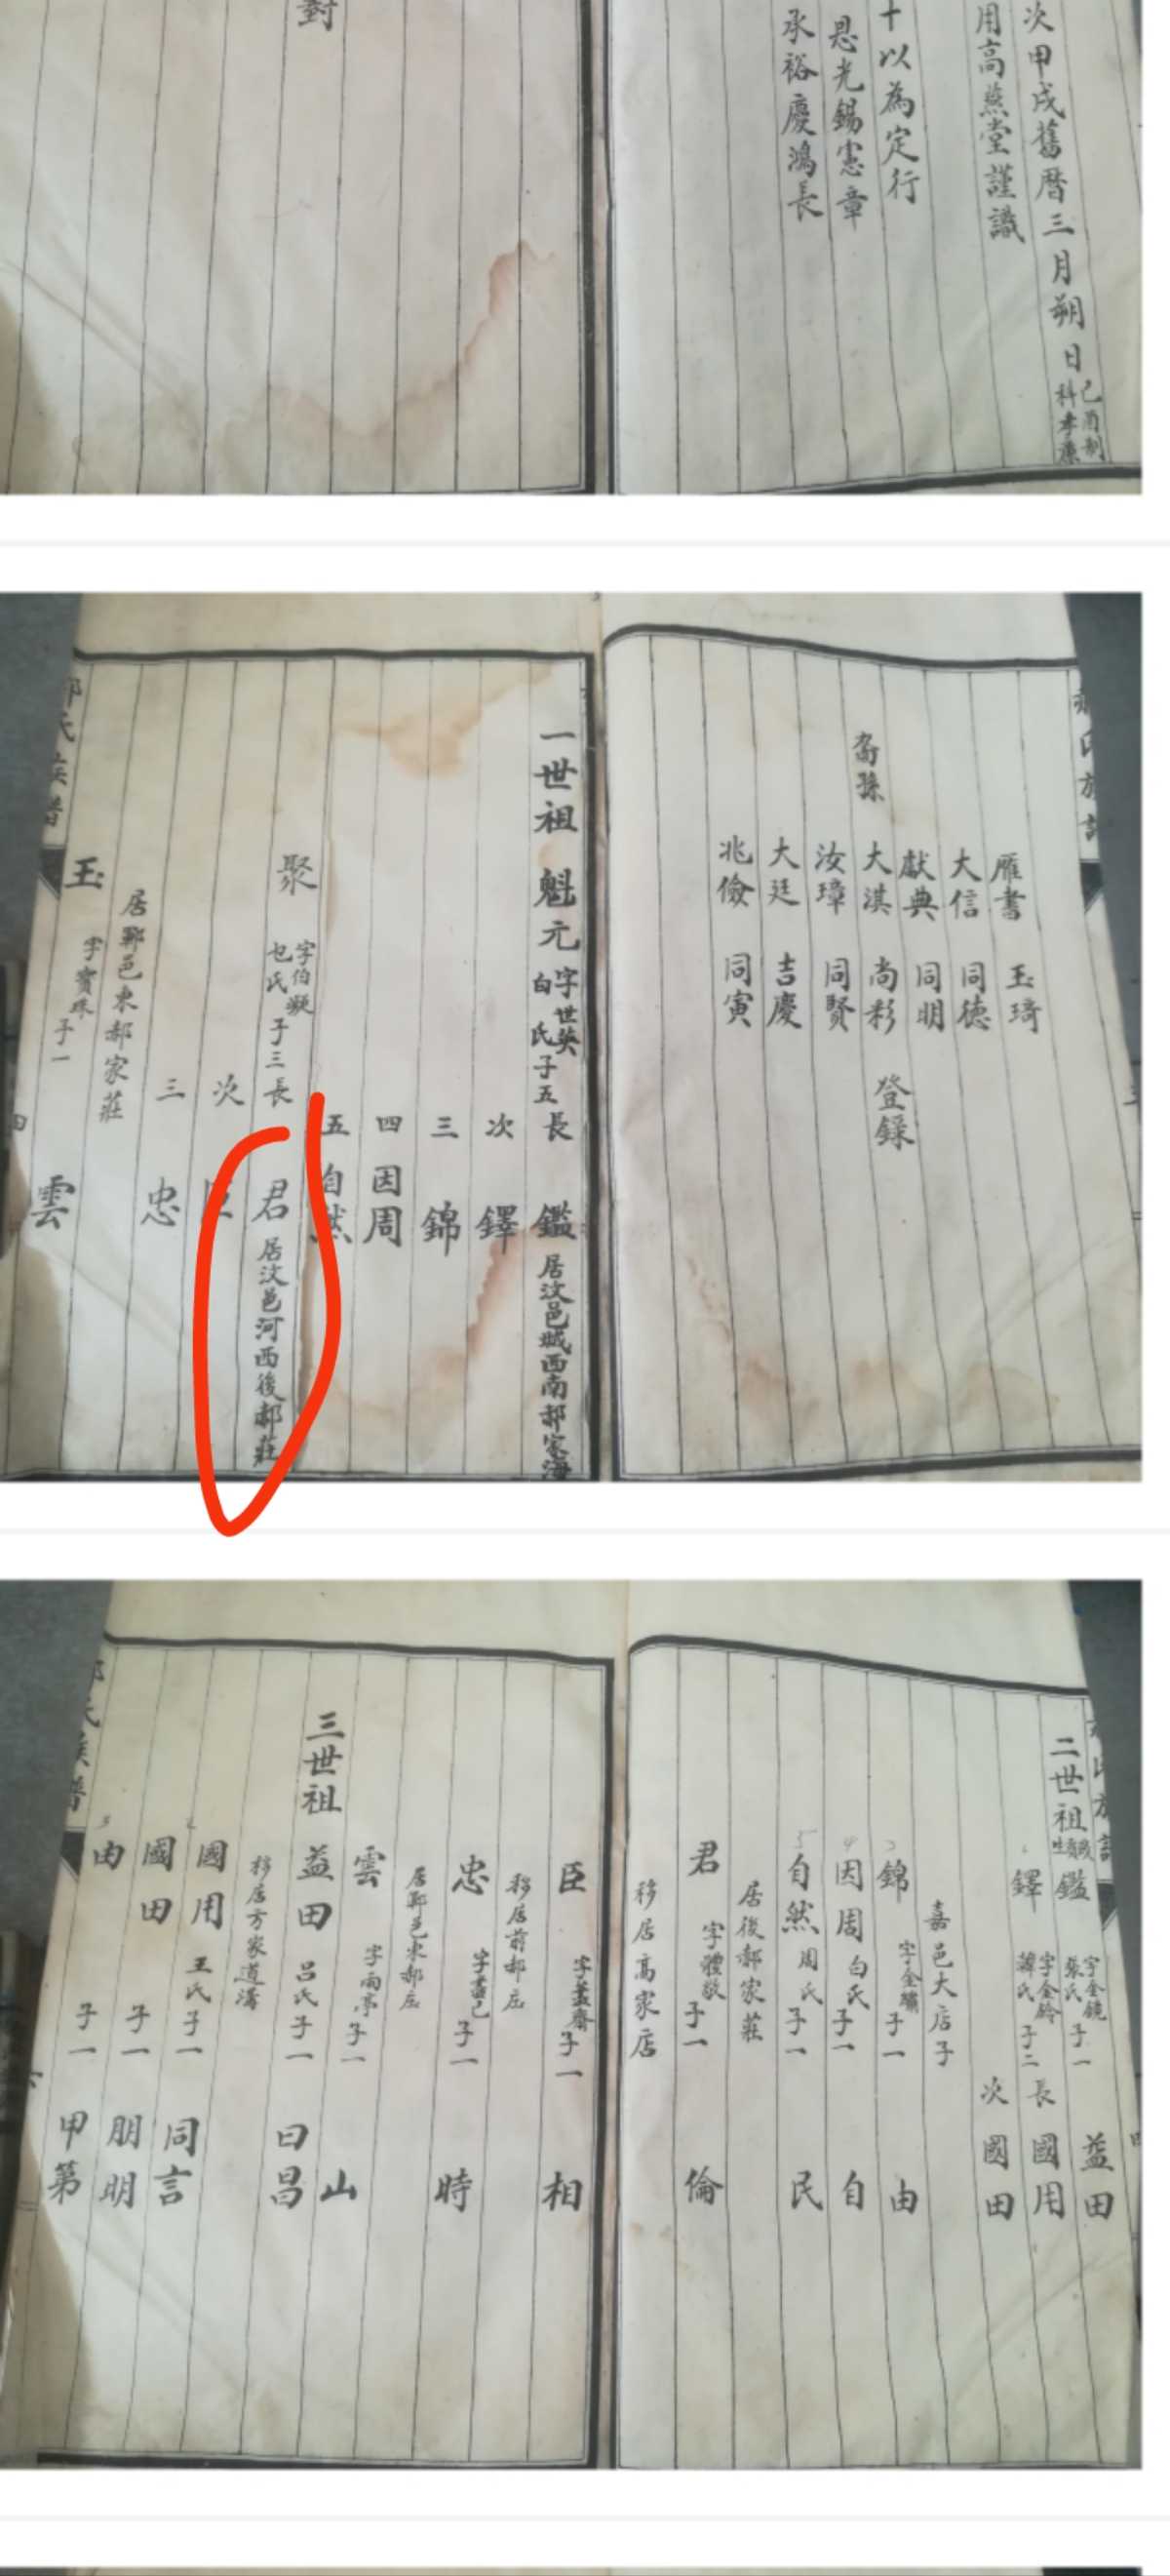 次甲戌舊曆三月朔日
己酉制
科孝廉
用高燕堂謹識
十以為定行
恩光錫憲章
承裕慶鴻長
對
裔孫
雁書 玉琦
大信 同德
獻典 同明
大淇 尚彩 登錄
汝璋 同賢
大廷 吉慶
兆儉 同寅
一世祖 魁元 字世英 白氏 子五 長 鑑 居汶邑城西南郝家海
次 鐸
三 錦
四 因周
五 自然
聚 字伯凝 包氏 子三 長 君 居汶邑河西後郝莊
次 臣
三 忠
居鄆邑東郝家莊
玉 字寶珠 子一 雲
郝氏族譜
二世祖 鑑 字金鏡 張氏 子一 益田
鐸 字金鈴 韓氏 子二 長 國用
次 國田
嘉邑大店子
錦 字金鑛 子一 由
因周 白氏 子一 自
自然 周氏 子一 民
居後郝家莊
君 字體敬 子一 倫
移居高家店
臣 字藎齋 子一 相
移居前郝庄
忠 字盡己 子一 時
居鄆邑東郝庄
雲 字雨亭 子一 山
三世祖 益田 呂氏 子一 曰昌
移居方家道溝
國用 王氏 子一 同言
國田 子一 朋明
由 子一 甲第
郝氏族譜